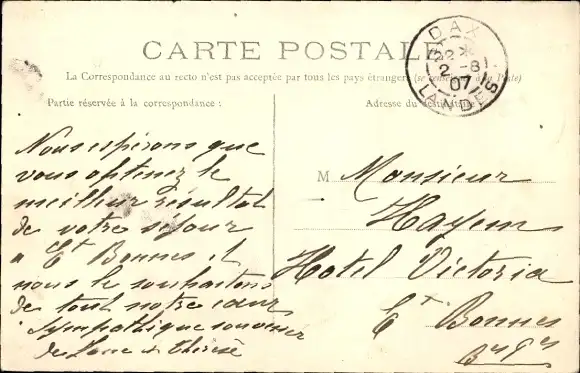 CARTE POSTALE
La Correspondance au recto n'est pas acceptée par tous les pays étrangers (se renseigner à la Poste)
Partie réservée à la correspondance :
Adresse du destinataire
DAX
2 -8
07
LANDES
Nous espérons que
vous obtenez le
meilleur résultat
de votre séjour
à Et Bonnes et
nous le souhaitons
de tout notre cœur
Sympathique souvenir
de et Thérèse
M Monsieur
Hayem
Hotel Victoria
Et Bonnes
Bses Pes